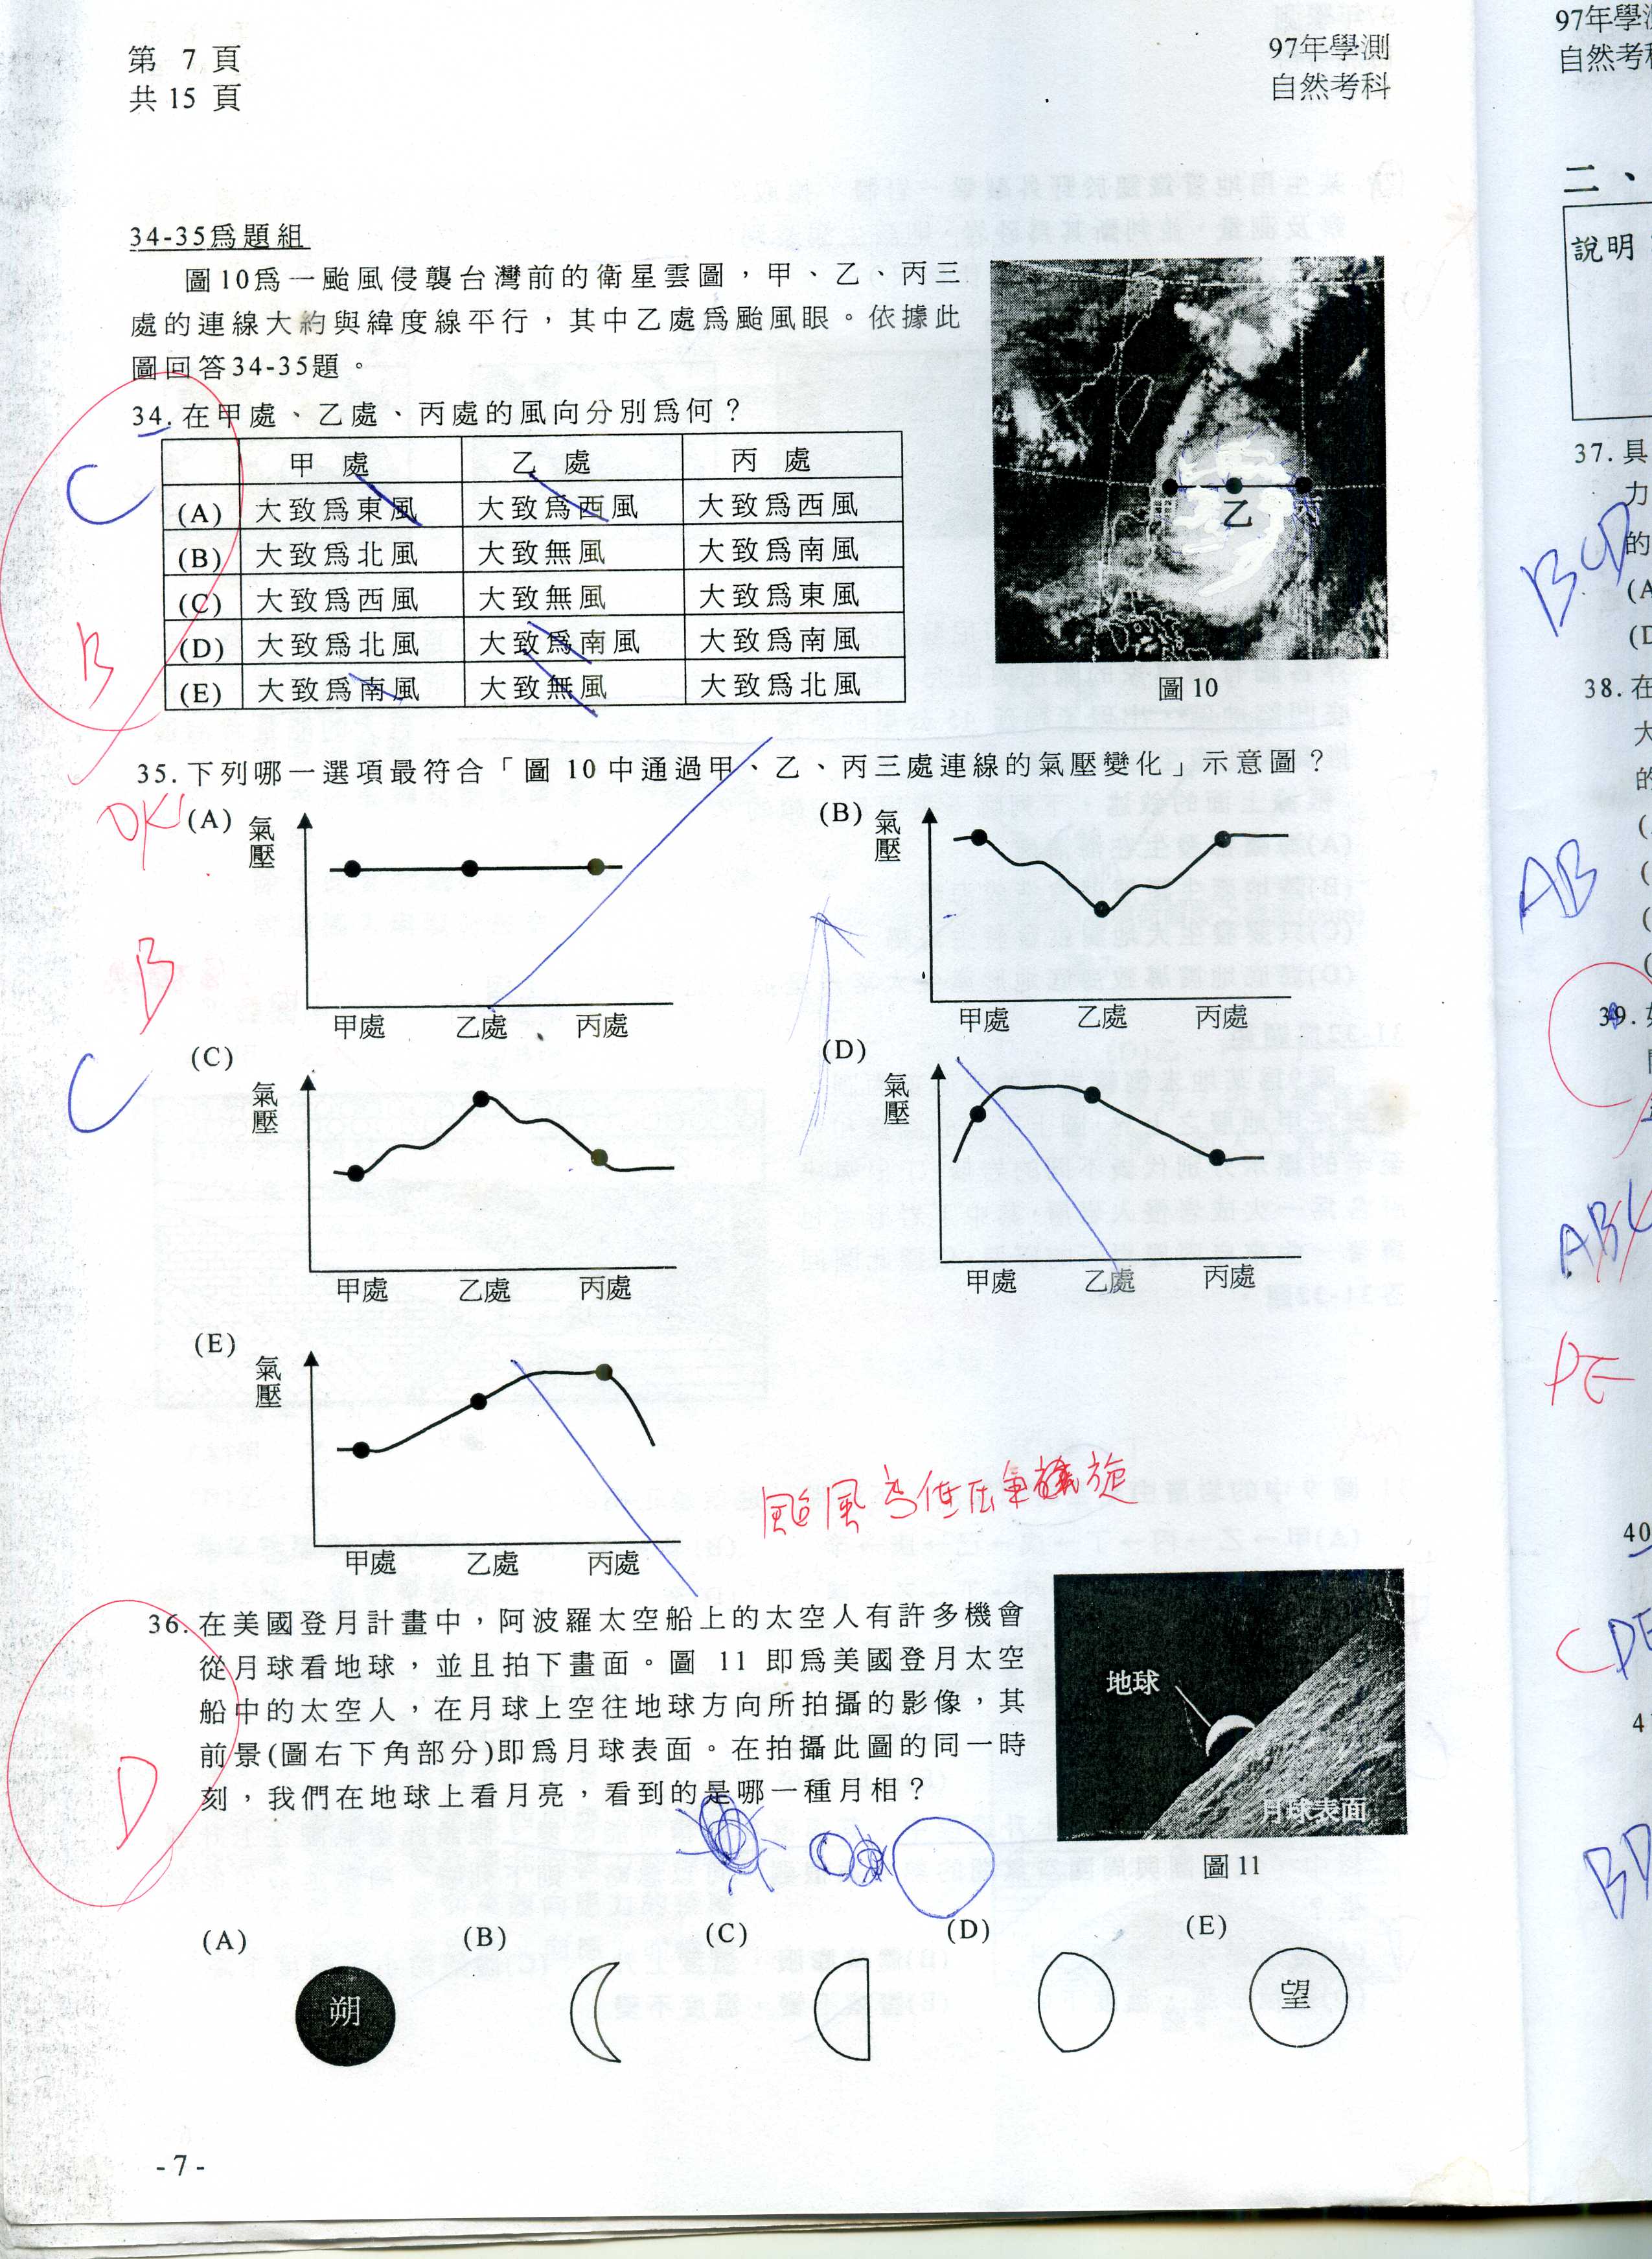 第 7 頁
共 15 頁
97年學測
自然考科
34-35為題組
圖10為一颱風侵襲台灣前的衛星雲圖，甲、乙、丙三
處的連線大約與緯度線平行，其中乙處為颱風眼。依據此
圖回答34-35題。
34. 在甲處、乙處、丙處的風向分別為何？
甲 處 乙 處 丙 處
(A) 大致為東風 大致為西風 大致為西風
(B) 大致為北風 大致無風 大致為南風
(C) 大致為西風 大致無風 大致為東風
(D) 大致為北風 大致為南風 大致為南風
(E) 大致為南風 大致無風 大致為北風
C
B
甲 乙 丙
圖 10
35. 下列哪一選項最符合「圖 10 中通過甲、乙、丙三處連線的氣壓變化」示意圖？
OK!
B
C
(A) 氣壓
甲處 乙處 丙處
(B) 氣壓
甲處 乙處 丙處
(C) 氣壓
甲處 乙處 丙處
(D) 氣壓
甲處 乙處 丙處
(E) 氣壓
甲處 乙處 丙處
颱風為低压氣旋
36. 在美國登月計畫中，阿波羅太空船上的太空人有許多機會
從月球看地球，並且拍下畫面。圖 11 即為美國登月太空
船中的太空人，在月球上空往地球方向所拍攝的影像，其
前景(圖右下角部分)即為月球表面。在拍攝此圖的同一時
刻，我們在地球上看月亮，看到的是哪一種月相？
D
地球
月球表面
圖 11
(A) (B) (C) (D) (E)
朔 望
- 7 -
97年學
自然考
二、
說明
37. 具
力
的
(A
(D
BCD
38. 在
大
的
AB
39.
ABC
DE
40
CDE
4
BD